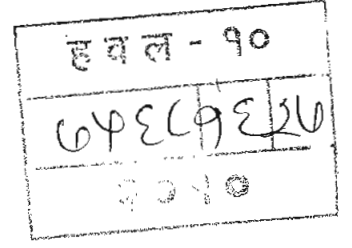 ह व ल - १०
७५६८ १६ २७
२०१०